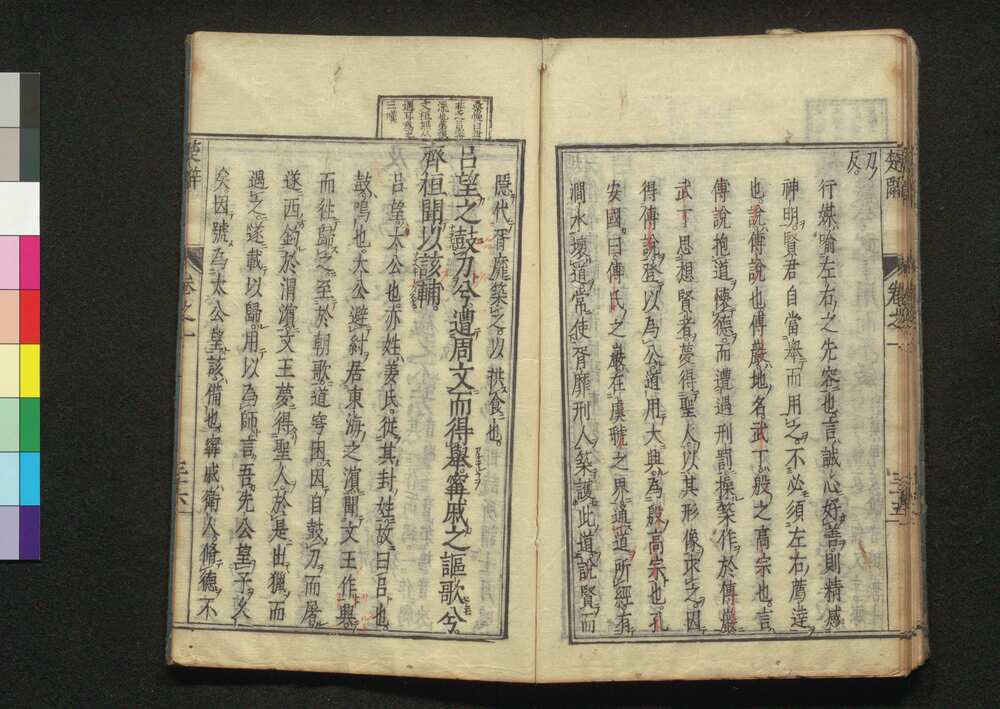 楚辭
卷之一
三十五
刀
反。
行媒喻左右之先容也。言誠心好善則精感
神明。賢君自當舉而用之。不必須左右薦達
也。說傅說也。傅巖地名。武丁殷之高宗也。言
傅說抱道懷德。而遭遇刑罰操築作於傅巖
武丁思想賢者。夢得聖人。以其形像求之。因
得傅說。登以為公道用大興為殷高宗也。孔
安國曰傅氏之巖在虞虢之界。通道所經。有
澗水壞道。常使胥靡刑人築護此道說賢而
隱代胥靡築之。以供食也。
呂望之鼓刀兮。遭周文而得舉。甯戚之謳歌兮。
齊桓聞以該輔。
呂望太公也。亦姓姜氏。從其封姓。故曰呂也。
鼓。鳴也。太公避紂。居東海之濱。聞文王作興。
而往歸之。至於朝歌道窮困。因自鼓刀而屠
遂西釣於渭濱。文王夢得聖人。於是出獵而
遇之。遂載以歸。用以為師。言吾先公望子久
矣。因號為太公望。該備也。甯戚衛人。脩德不
楚辭
卷之一
三十六